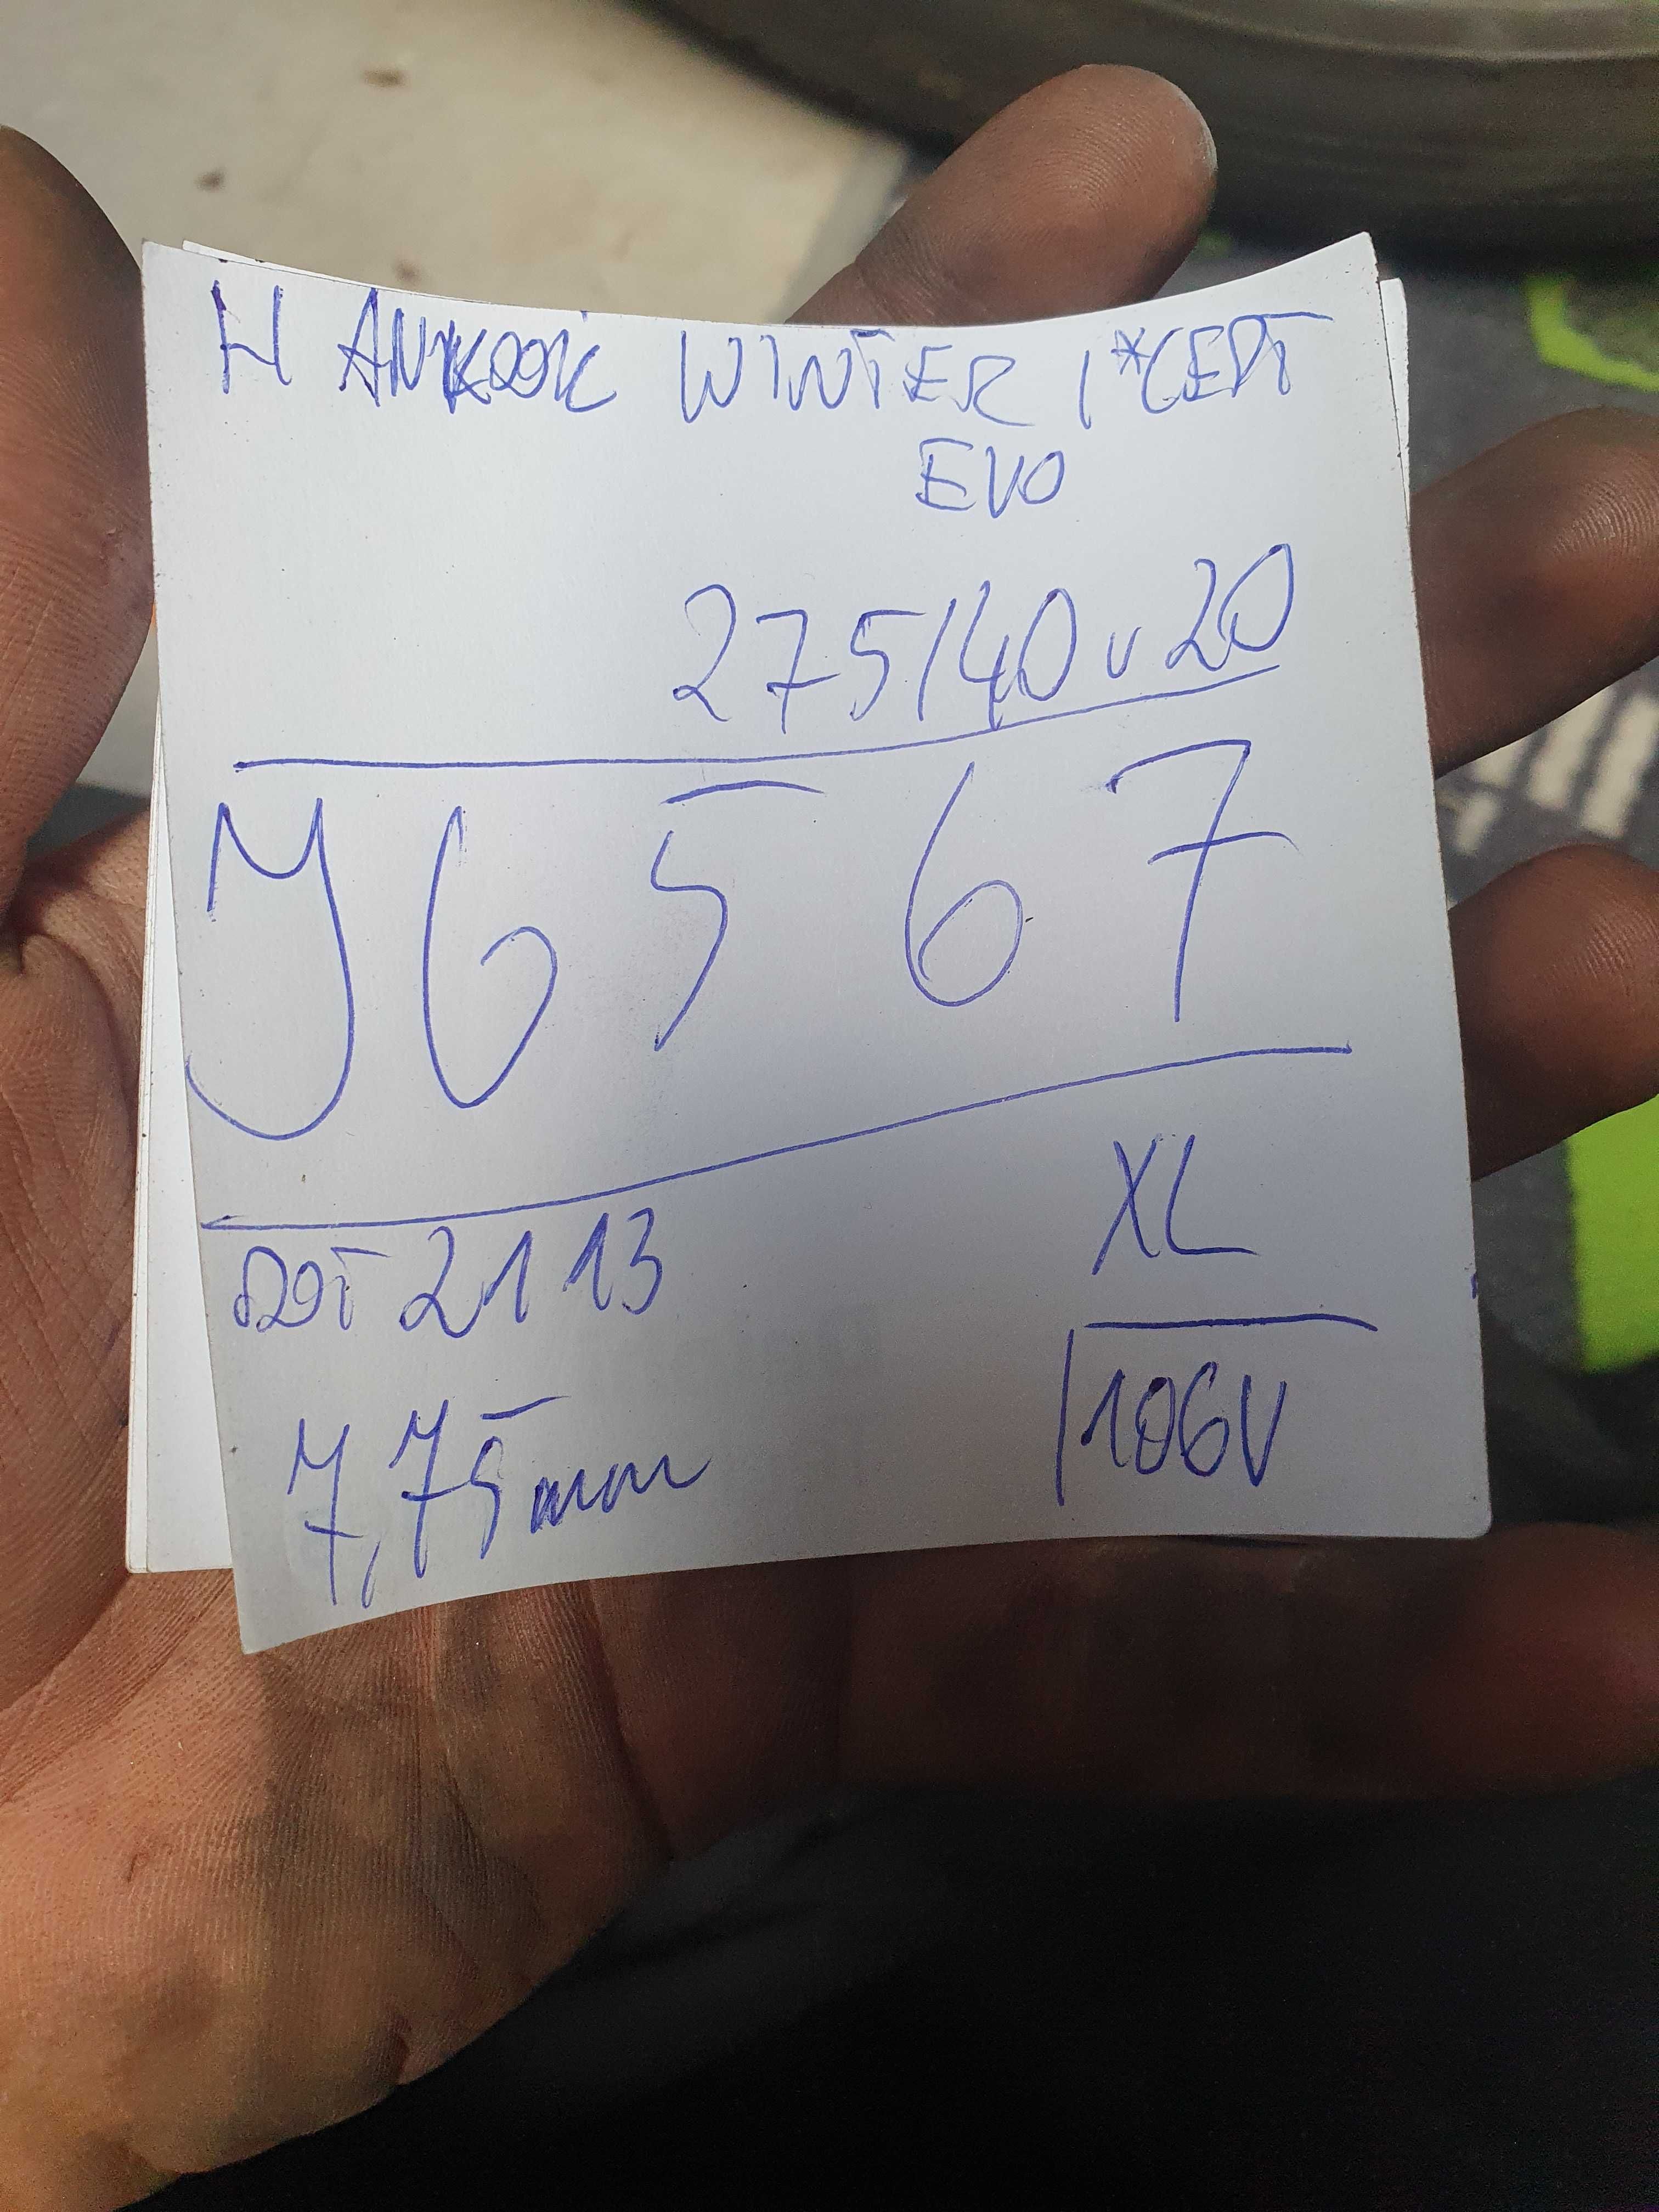 HANKOOK WINTER I*CEPT
EVO
275/40 r 20
J6567
DOT 2113
XL
7,75mm
106V